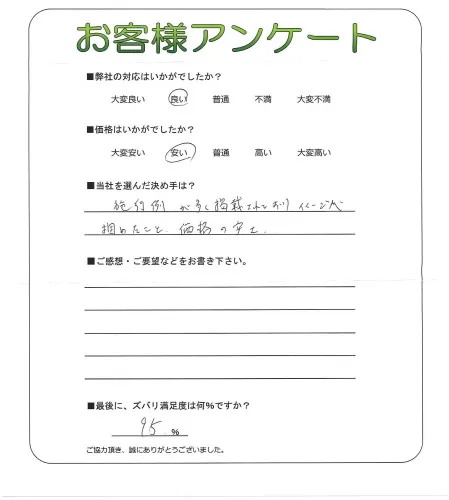 お客様アンケート
■弊社の対応はいかがでしたか？
大変良い 良い 普通 不満 大変不満
■価格はいかがでしたか？
大変安い 安い 普通 高い 大変高い
■当社を選んだ決め手は？
施行例が多く掲載されており イメージが
掴めたこと、価格の安さ。
■ご感想・ご要望などをお書き下さい。
■最後に、ズバリ満足度は何％ですか？
95 %
ご協力頂き、誠にありがとうございました。